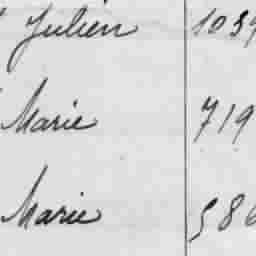 Julien 1039
Marie 719
Marie 586